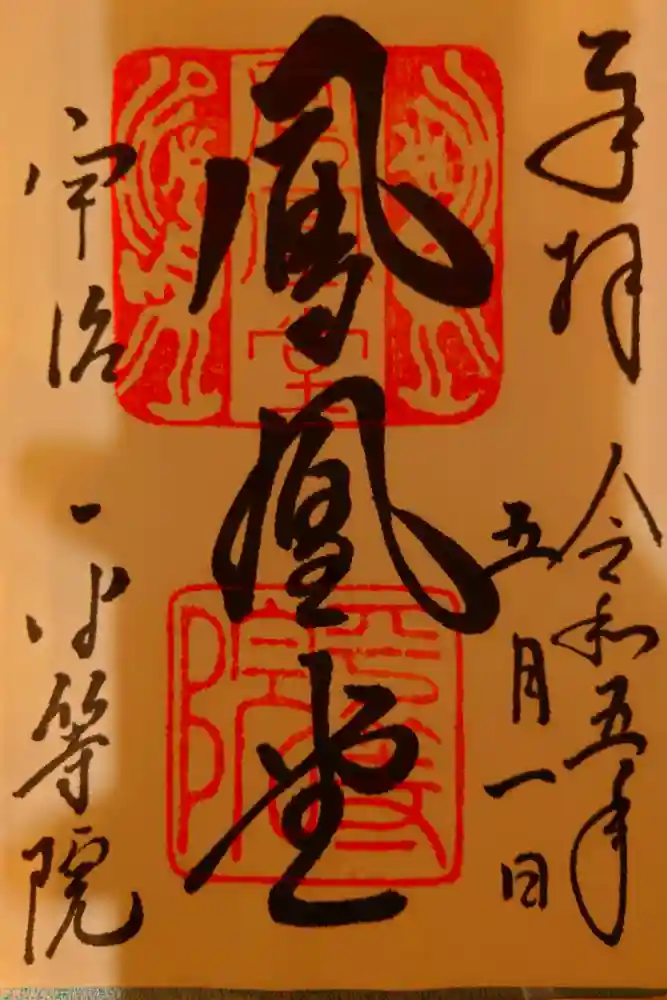 奉拝
令和五年
五月一日
鳳凰堂
鳳凰堂
平等院
宇治 平等院